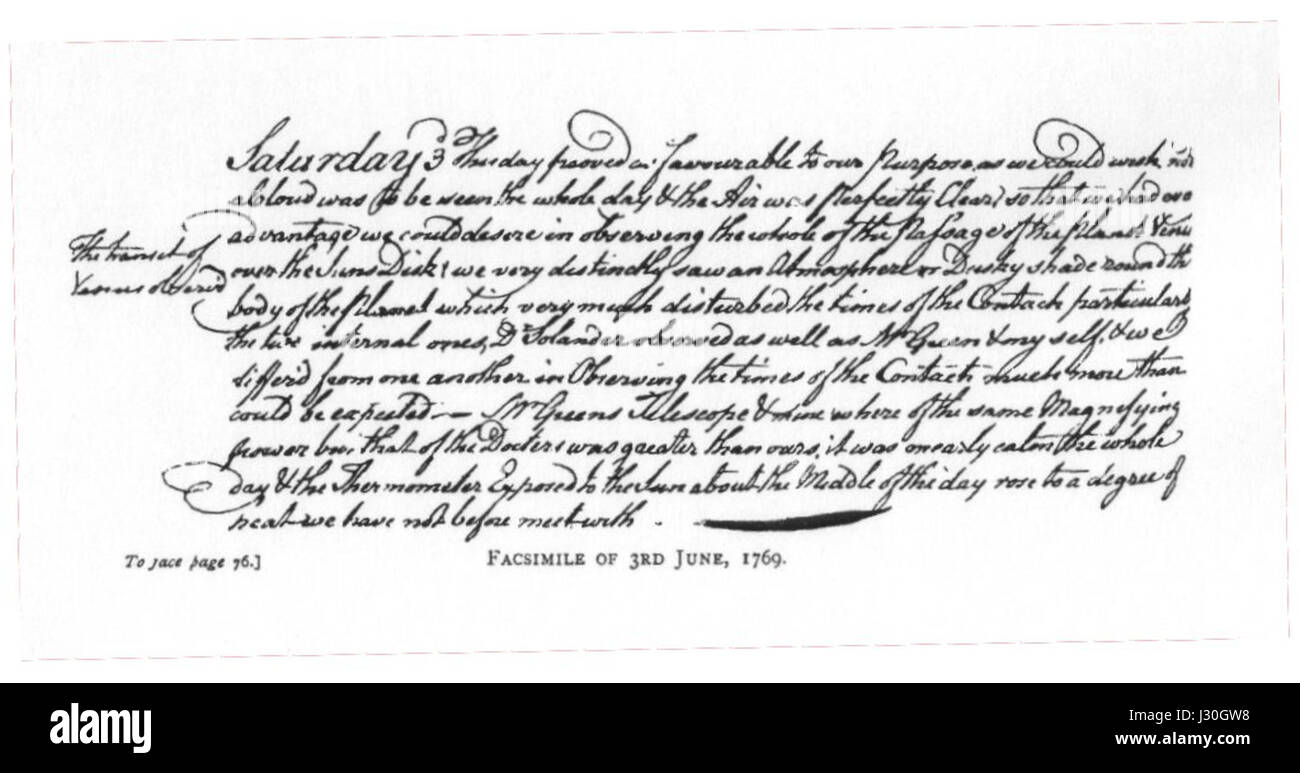 Saturday 3d This day proved as favourable to our Purpose as we could wish, not
a Cloud was to be seen the whole day & the Air was Perfectly Clear, so that we had every
advantage we could desire in observing the whole of the Passage of the Planet Venus
over the Suns Disk: we very distinctly saw an Atmosphere or Dusky shade round the
body of the Planet which very much disturbed the times of the Contacts particularly
the two internal ones, Dr Solander observed as well as Mr Green & my self, & we
differ'd from one another in Observing the times of the Contacts much more than
could be expected — Mr Greens Telescope & mine where of the same Magnifying
power but that of the Docters was greater than ours, it was nearly calm the whole
day & the Thermometer Exposed to the Sun about the Middle of the day rose to a degree of
heat we have not before meet with.
The transit of
Venus observed
To face page 76.]
FACSIMILE OF 3RD JUNE, 1769.
a
alamy stock photo
J30GW8
www.alamy.com